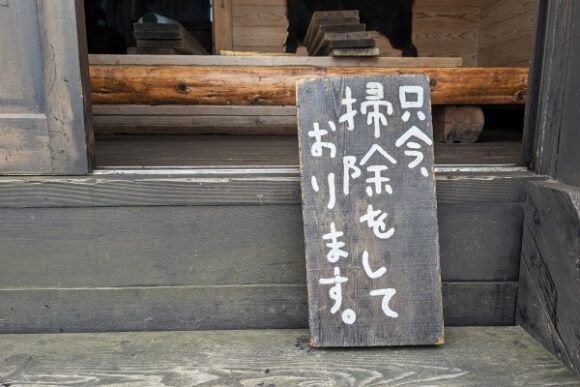 只今、
掃除をして
おります。